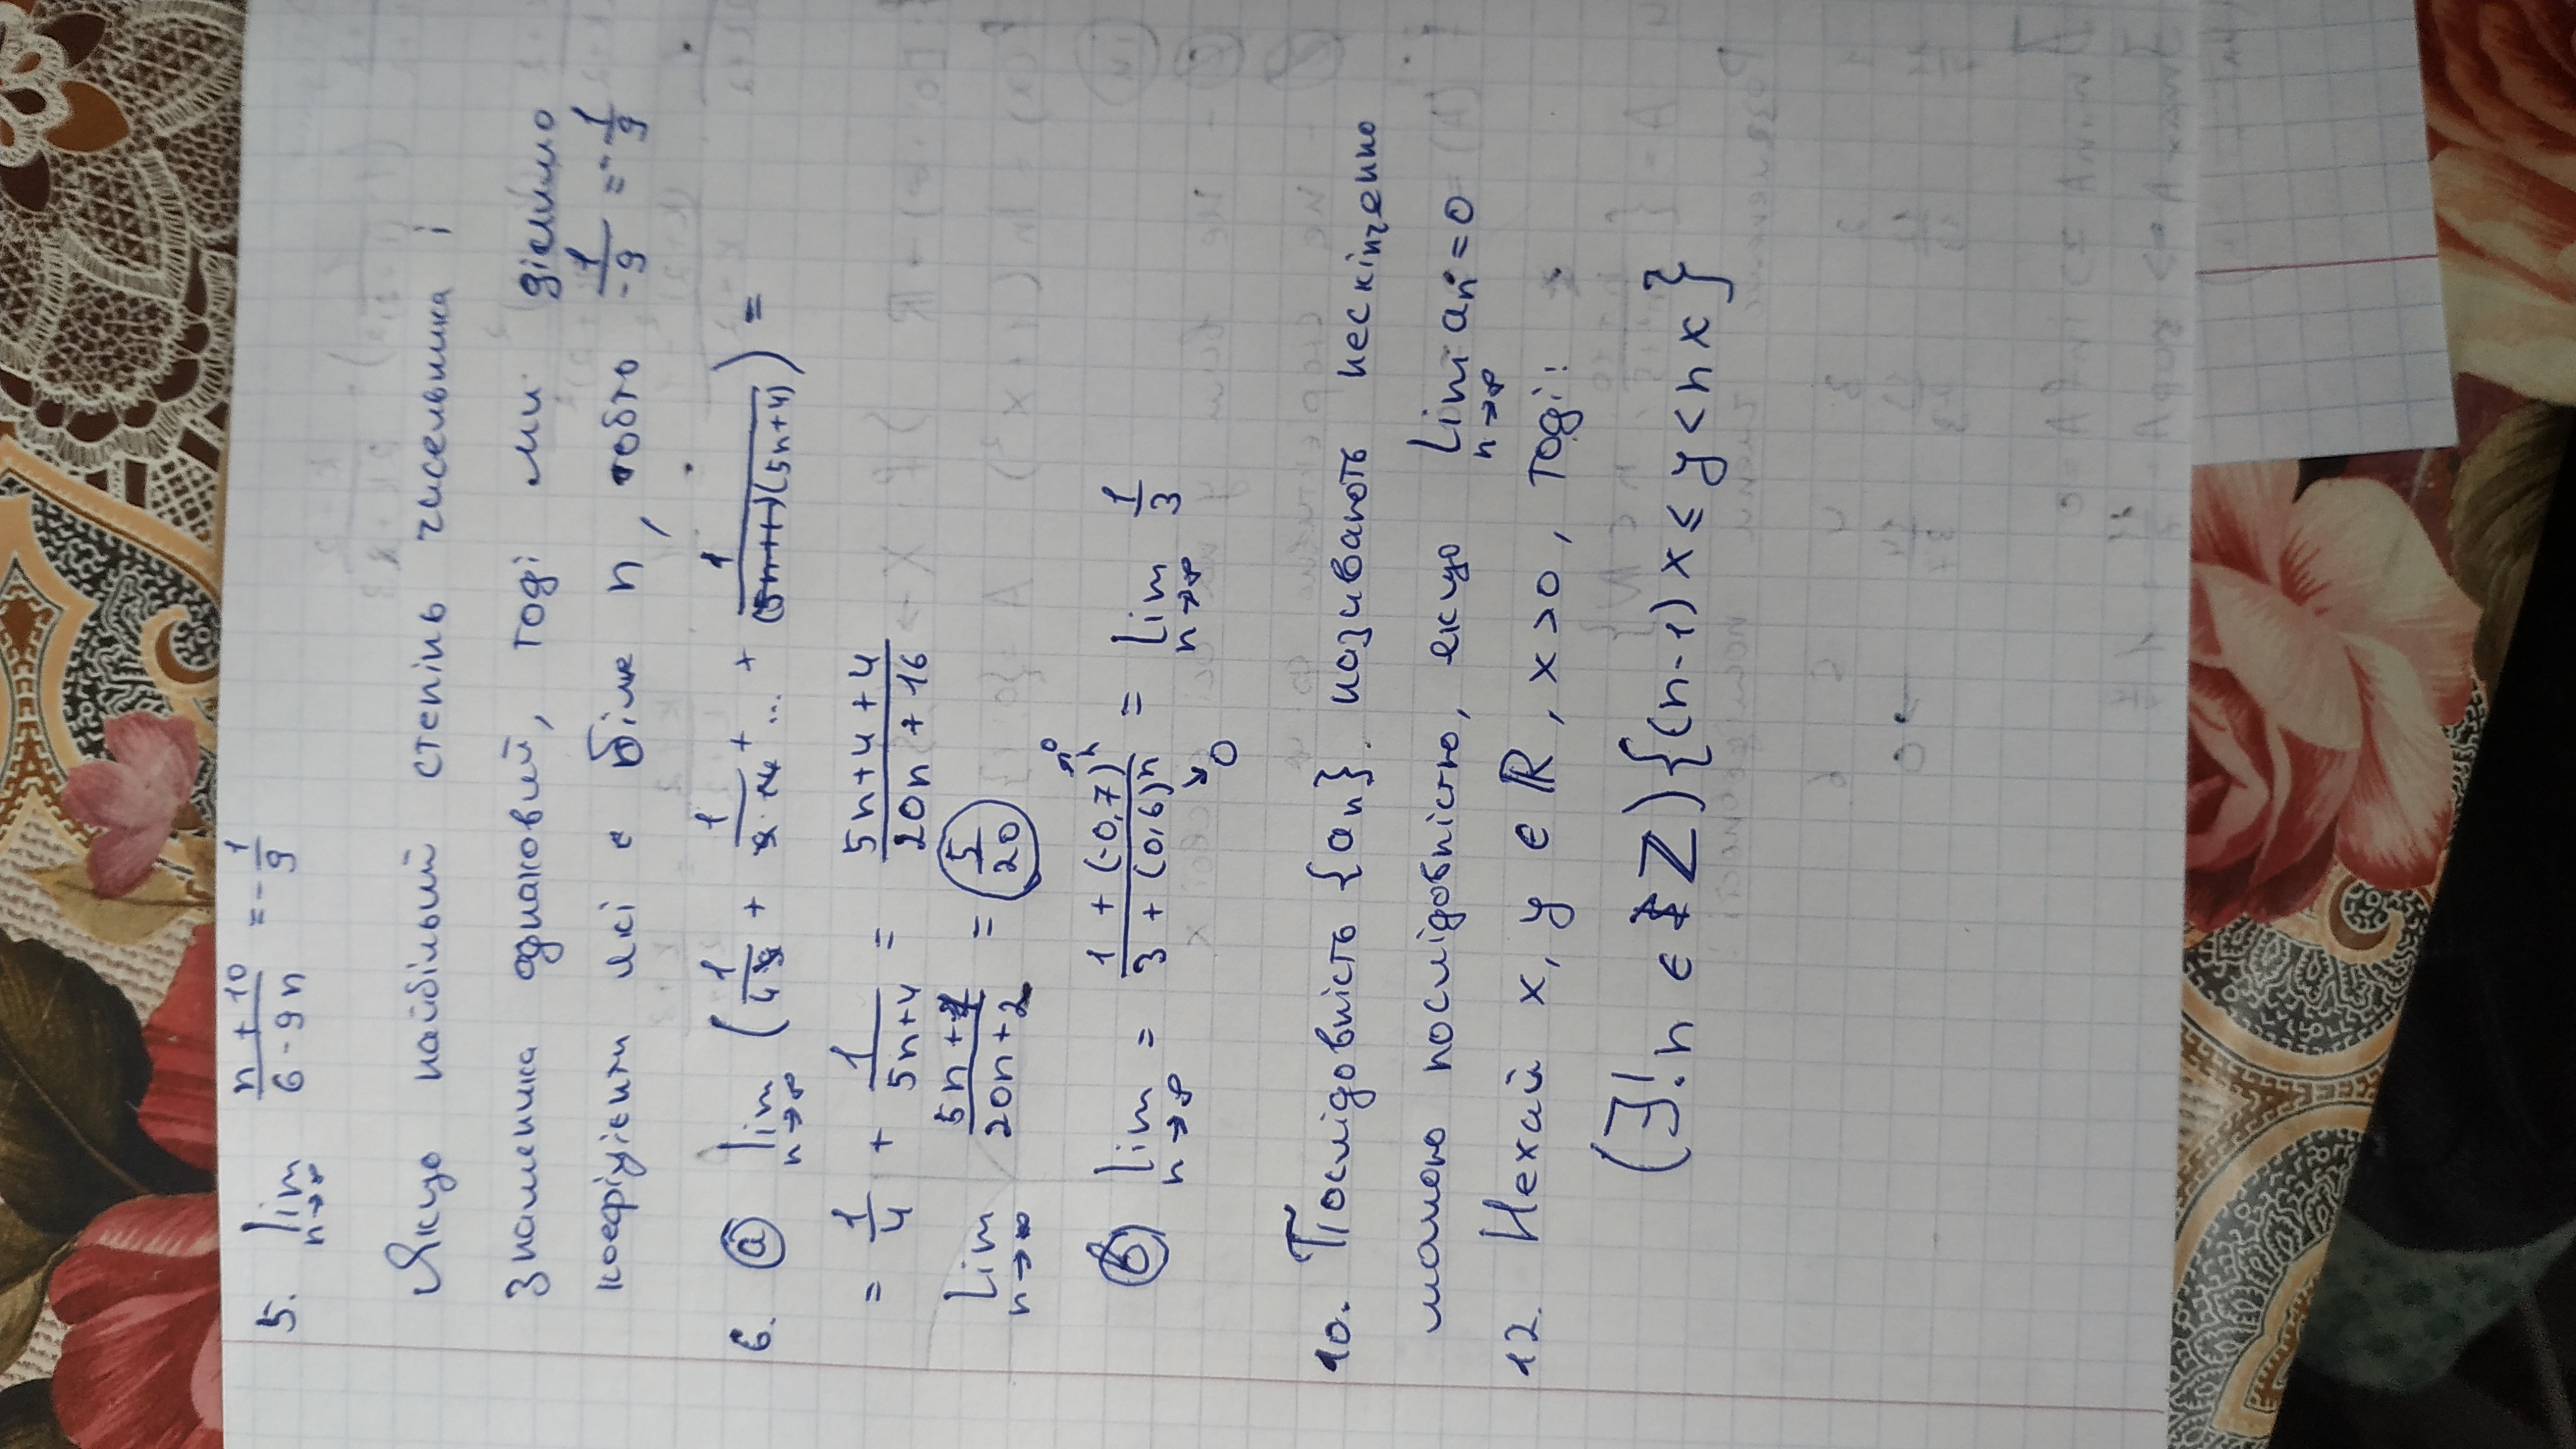 5. lim n→∞ (n + 10)/(6 - 9n) = -1/9
Якщо найбільший степінь чисельника і
знаменика однаковий, тоді ми ділимо
коефіцієнти які є біля n, тобто 1/-9 = -1/9
6. а) lim n→∞ (1/(4·9) + 1/(9·14) + ... + 1/((5n+1)(5n+4))) =
= 1/4 + 1/(5n+4) = (5n+4+4)/(20n+16)
lim n→∞ (5n+1)/(20n+2) = 5/20
→0
б) lim n→∞ = (1 + (-0,7)^n)/(3 + (0,6)^n) = lim n→∞ 1/3
↘0
10. Послідовність {an} називають нескінченно
малою послідовністю, якщо lim n→∞ an = 0
12. Нехай x, y ∈ ℝ, x>0, тоді:
(∃! n ∈ ℤ){(n-1)x ≤ y < nx}